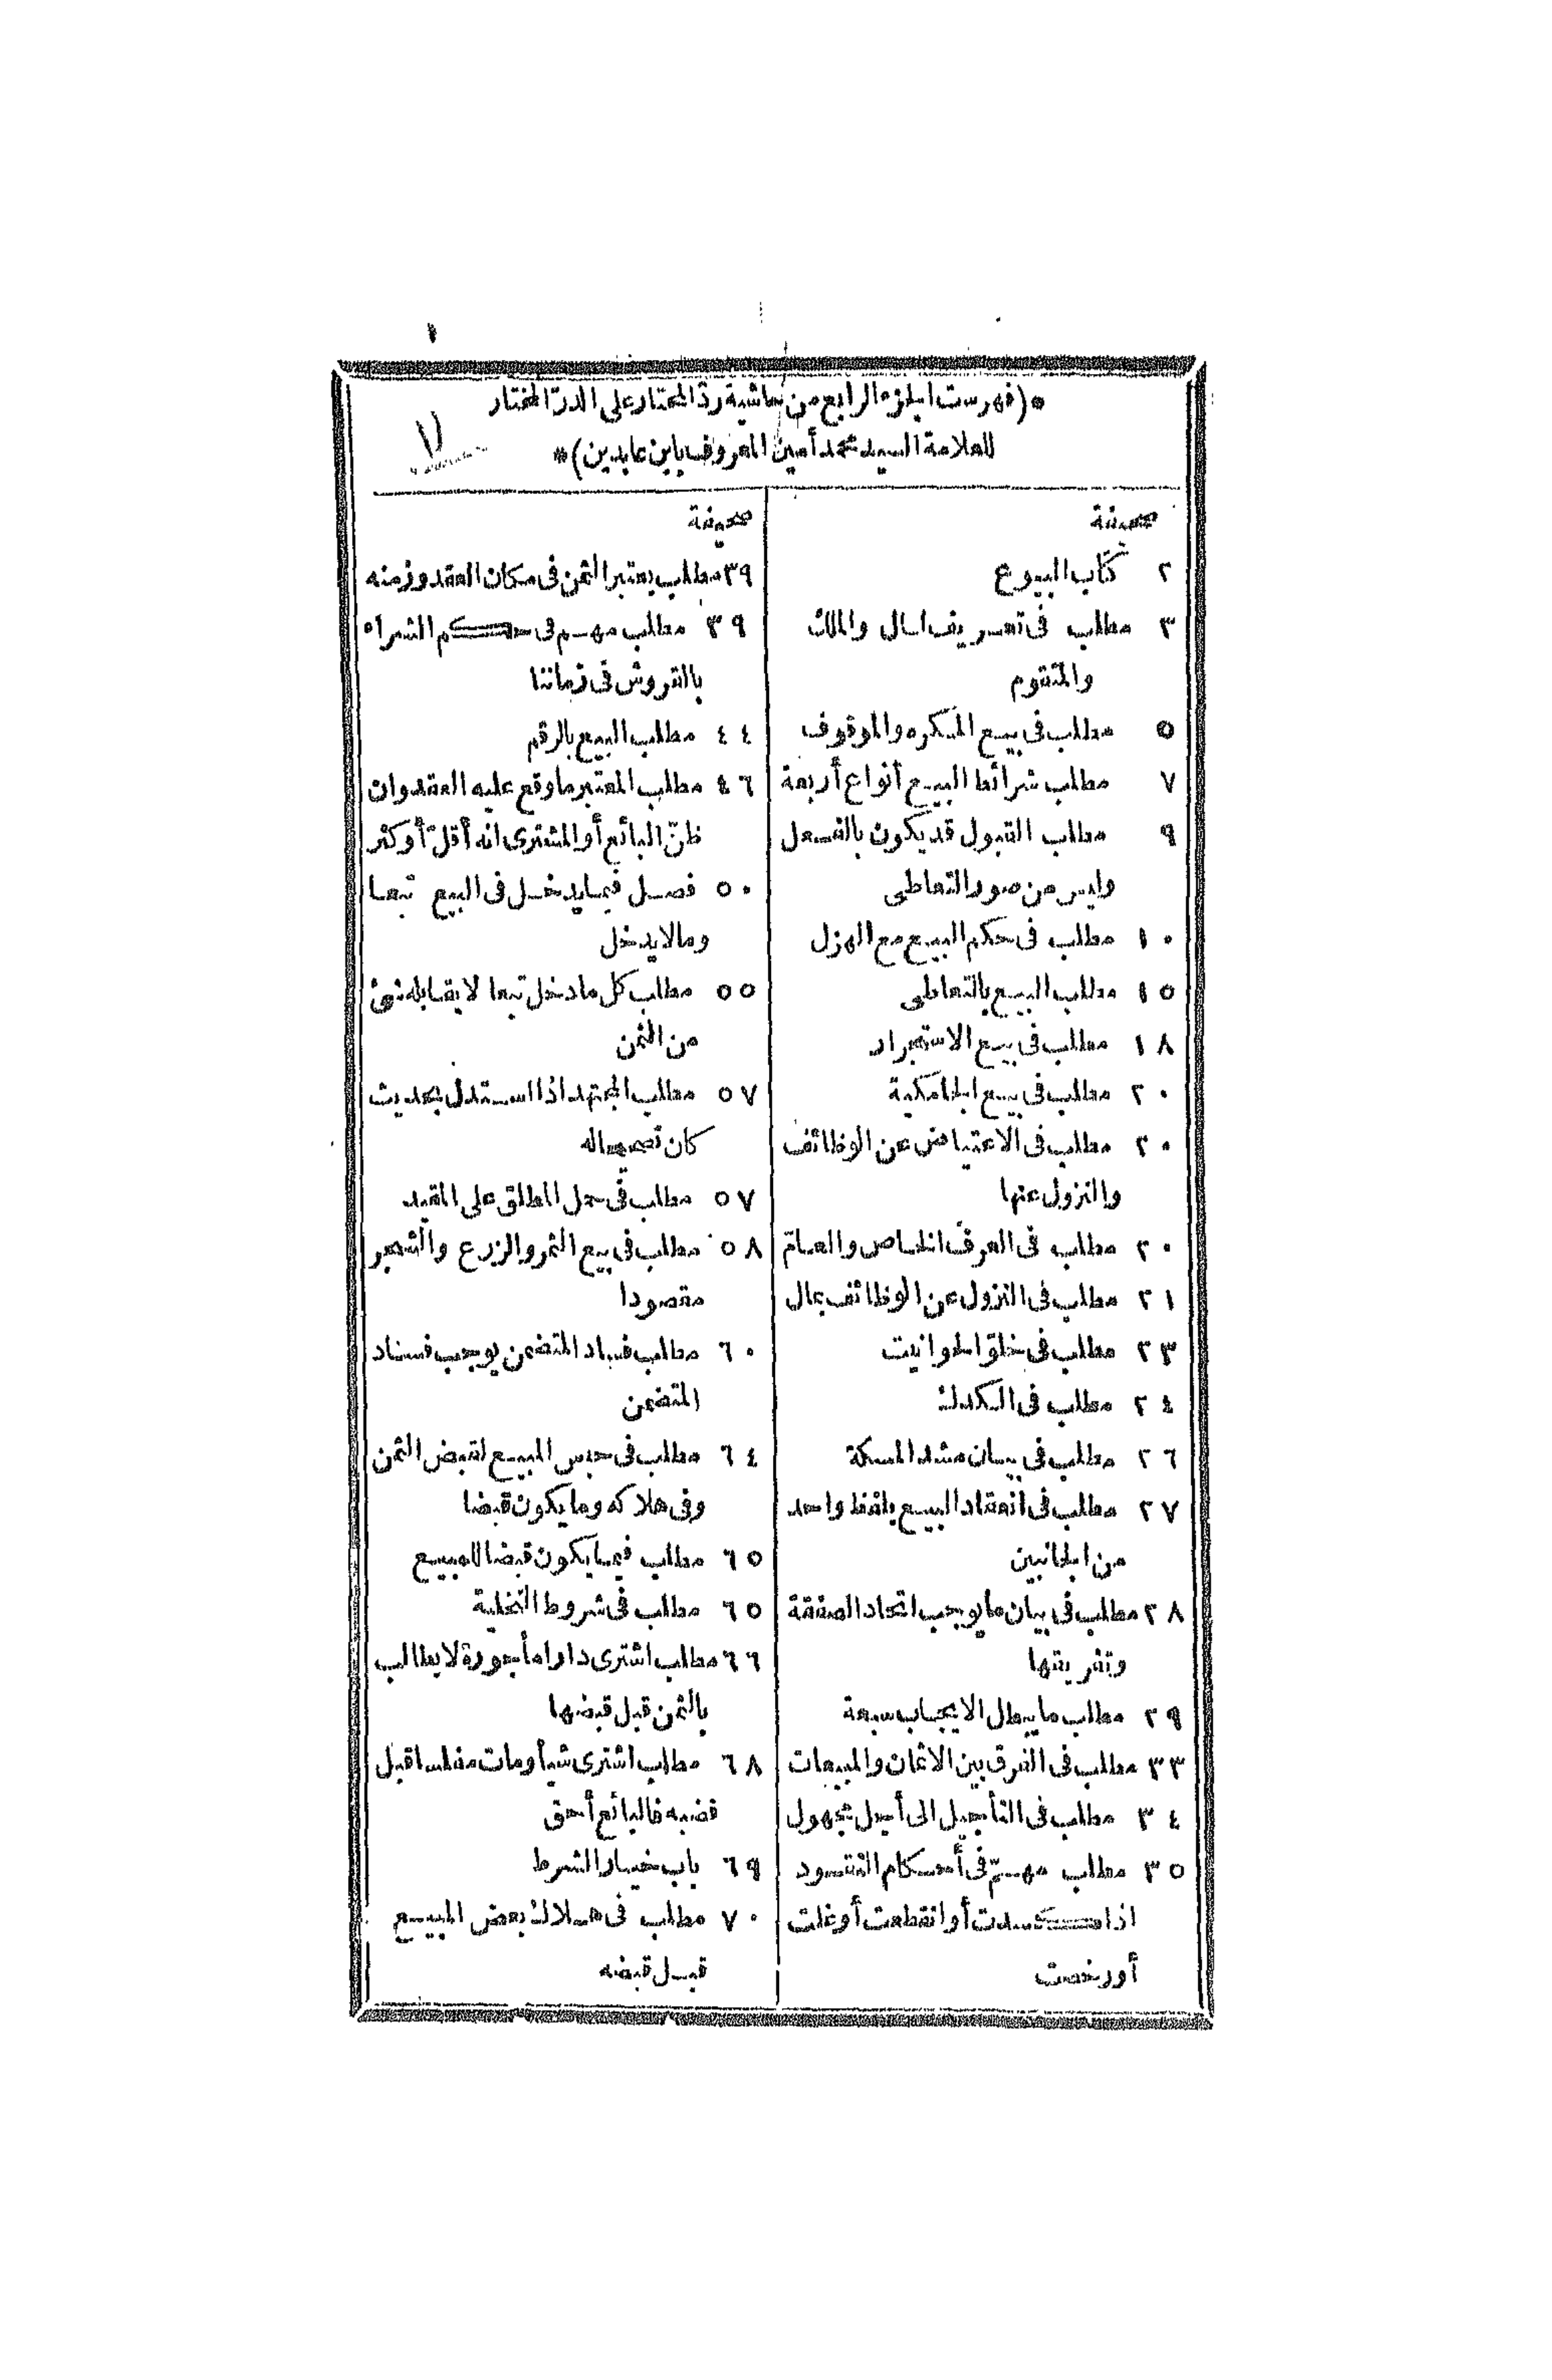 *(فهرست الجزء الرابع من حاشية ردّ المحتار على الدرّ المختار
للعلامة السيد محمد أمين المعروف بابن عابدين)*
صحيفة
٢ كتاب البيوع
٣ مطلب فى تعريف المال والملك
والمتقوم
٥ مطلب فى بيع المكره والموقوف
٧ مطلب شرائط البيع أنواع أربعة
٩ مطلب القبول قد يكون بالفعل
وليس من صور التعاطى
١٠ مطلب فى حكم البيع مع الهزل
١٥ مطلب البيع بالتعاطى
١٨ مطلب فى بيع الاستجرار
٢٠ مطلب فى بيع الجامكية
٢٠ مطلب فى الاعتياض عن الوظائف
والنزول عنها
٢٠ مطلب فى العرف الخاص والعامّ
٢١ مطلب فى النزول عن الوظائف بمال
٢٣ مطلب فى خلوّ الحوانيت
٢٤ مطلب فى الكدك
٢٦ مطلب فى بيان مشد المسكة
٢٧ مطلب فى انعقاد البيع بلفظ واحد
من الجانبين
٢٨ مطلب فى بيان ما يوجب اتحاد الصفقة
وتفريقها
٢٩ مطلب ما يبطل الايجاب سبعة
٣٣ مطلب فى الفرق بين الاثمان والمبيعات
٣٤ مطلب فى التأجيل الى أجل مجهول
٣٥ مطلب مهمّ فى أحكام النقود
اذا كسدت أو انقطعت أو غلت
أو رخصت
صحيفة
٣٩ مطلب يعتبر الثمن فى مكان العقد وزمنه
٣٩ مطلب مهم فى حكم الشراء
بالقروش فى زماننا
٤٤ مطلب البيع بالرقم
٤٦ مطلب المعتبر ما وقع عليه العقد وان
ظنّ البائع أو المشترى انه أقلّ أو كثر
٥٠ فصل فيما يدخل فى البيع تبعا
وما لا يدخل
٥٥ مطلب كل ما دخل تبعا لا يقابله شئ
من الثمن
٥٧ مطلب المجتهد اذا استدل بحديث
كان تصحيحا له
٥٧ مطلب فى حمل المطلق على المقيد
٥٨ مطلب فى بيع الثمر والزرع والشجر
مقصودا
٦٠ مطلب فساد المتضمن يوجب فساد
المتضمن
٦٤ مطلب فى حبس المبيع لقبض الثمن
وفى هلاكه وما يكون قبضا
٦٥ مطلب فيما يكون قبضا للمبيع
٦٥ مطلب فى شروط التخلية
٦٦ مطلب اشترى دارا مأجورة لا يطالب
بالثمن قبل قبضها
٦٨ مطلب اشترى شيأ ومات مفلسا قبل
قبضه فالبائع أحق
٦٩ باب خيار الشرط
٧٠ مطلب فى هلاك بعض المبيع
قبل قبضه